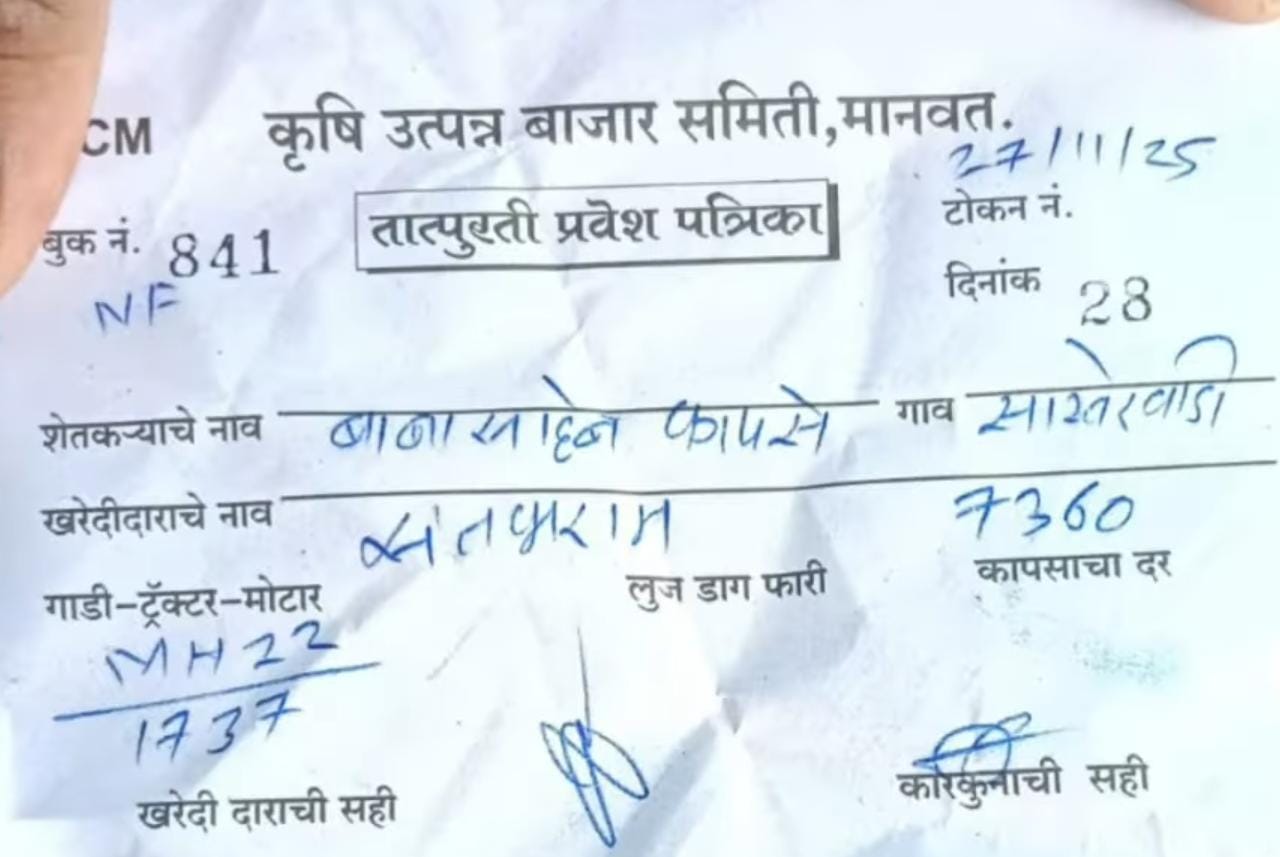 CM कृषि उत्पन्न बाजार समिती,मानवत.
27/11/25
बुक नं. 841 तात्पुरती प्रवेश पत्रिका टोकन नं.
NF दिनांक 28
शेतकऱ्याचे नाव बाबासाहेब कापसे गाव
खरेदीदाराचे नाव 7360
गाडी-ट्रॅक्टर-मोटार लुज डाग फारी कापसाचा दर
MH22
1737
खरेदी दाराची सही कारकुनाची सही